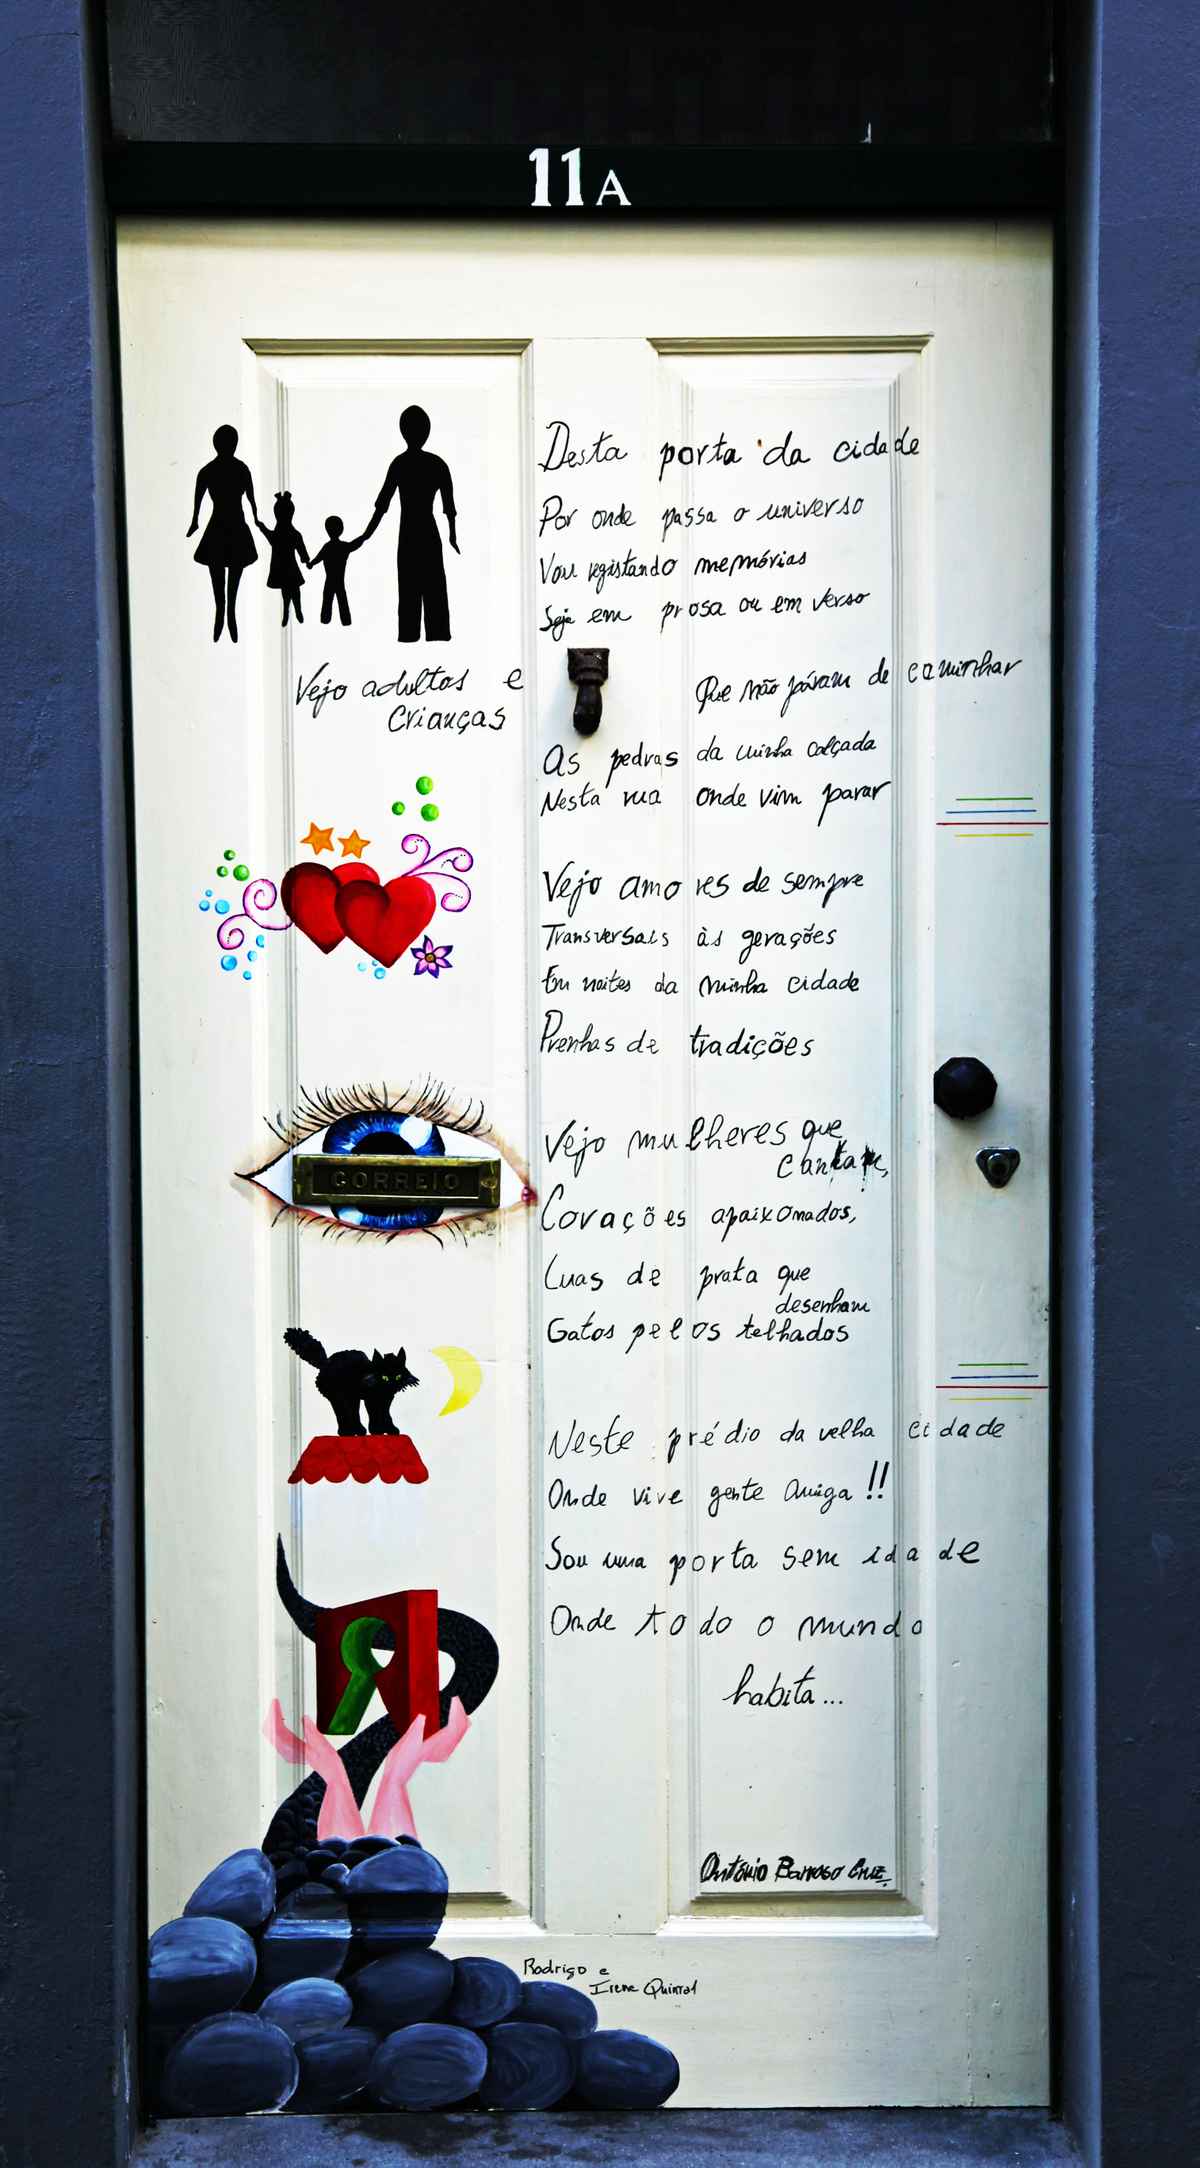 11A
Desta porta da cidade
Por onde passa o universo
Vou registando memórias
Seja em prosa ou em verso
Vejo adultos e
crianças
Que não páram de caminhar
As pedras da minha calçada
Nesta rua onde vim parar
Vejo amores de sempre
Transversais às gerações
Em noites da minha cidade
Prenhas de tradições
CORREIO
Vejo mulheres que
cantam,
Corações apaixonados,
Luas de prata que
desenham
Gatos pelos telhados
Neste prédio da velha cidade
Onde vive gente amiga!!
Sou uma porta sem idade
Onde todo o mundo
habita...
António Barroso Cruz
Rodrigo e
Irene Quintal